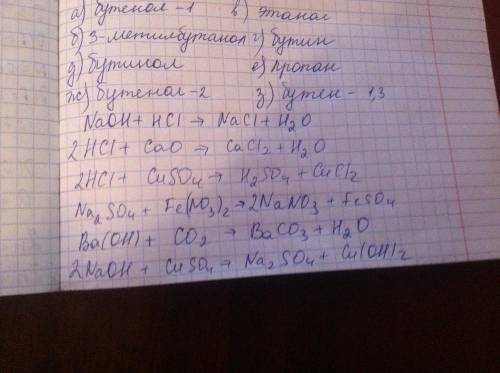 а) бутенол-1 в) этанол
б) 3-метилбутанол г) бутин
д) бутинол е) пропан
ж) бутенол-2 з) бутен-1,3
NaOH + HCl → NaCl + H2O
2HCl + CaO → CaCl2 + H2O
2HCl + CuSO4 → H2SO4 + CuCl2
Na2SO4 + Fe(NO3)2 → 2NaNO3 + FeSO4
Ba(OH) + CO2 → BaCO3 + H2O
2NaOH + CuSO4 → Na2SO4 + Cu(OH)2